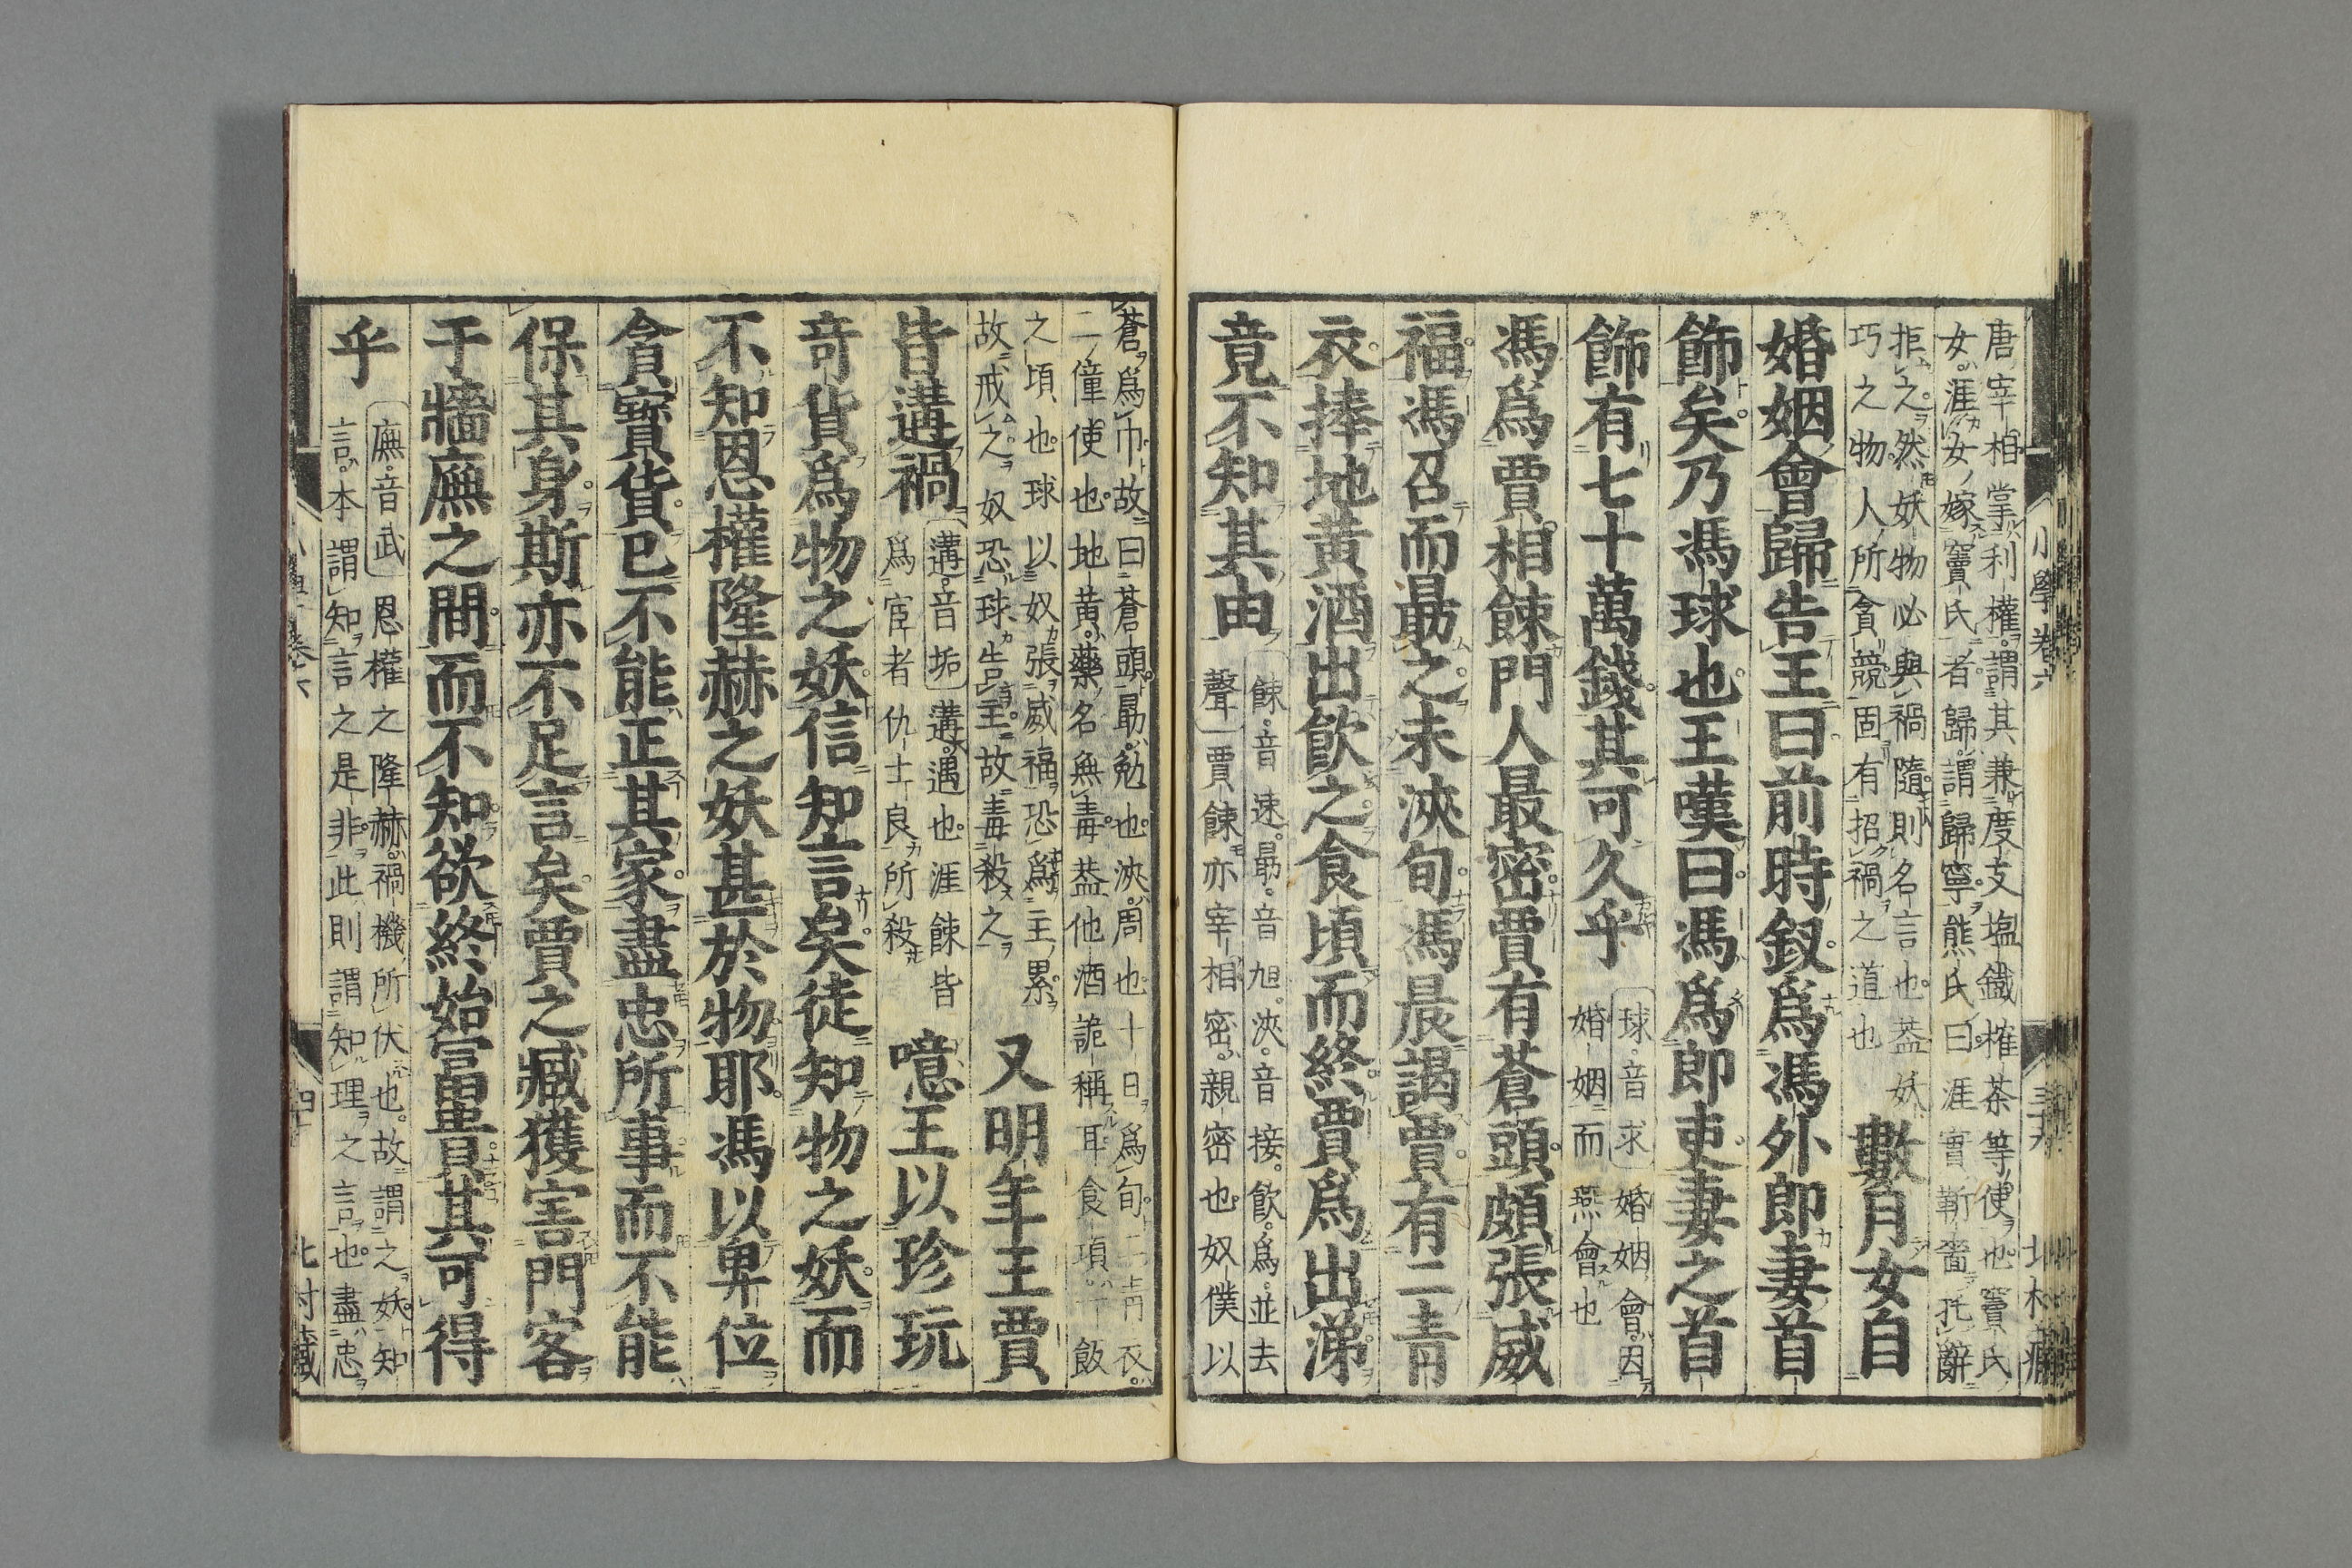 唐宰相掌利權謂其兼度支塩鐵榷茶等使也竇氏
女涯女嫁竇氏者歸謂歸寧熊氏曰涯實靳嗇托辭
拒之然妖物必與禍隨則名言也葢妖
巧之物人所貪競固有招禍之道也
數月女自
婚姻會歸告王曰前時釵爲馮外郎妻首
飾矣乃馮球也王嘆曰馮爲郎吏妻之首
飾有七十萬錢其可久乎
球音求婚姻會因
婚姻而燕會也
馮爲賈相餗門人最密賈有蒼頭頗張威
福馮召而勗之未浹旬馮晨謁賈有二青
衣捧地黄酒出飲之食頃而終賈爲出涕
竟不知其由
餗音速勗音旭浹音接飲爲並去
聲賈餗亦宰相密親密也奴僕以
小學卷六
蒼爲巾故曰蒼頭勗勉也浹周也十日爲旬二青衣
二僮使也地黄藥名無毒葢他酒詭稱耳食頃一飯
之頃也球以奴張威福恐爲主累
故戒之奴恐球告主故毒殺之
又明年王賈
皆遘禍
遘音垢遘遇也涯餗皆
爲宦者仇士良所殺
噫王以珍玩
竒貨爲物之妖信知言矣徒知物之妖而
不知恩權隆赫之妖甚於物耶馮以卑位
貪寳貨已不能正其家盡忠所事而不能
保其身斯亦不足言矣賈之臧獲害門客
于牆廡之間而不知欲終始冨貴其可得
乎
廡音武恩權之隆赫禍機所伏也故謂之妖知
言本謂知言之是非此則謂知理之言也盡忠